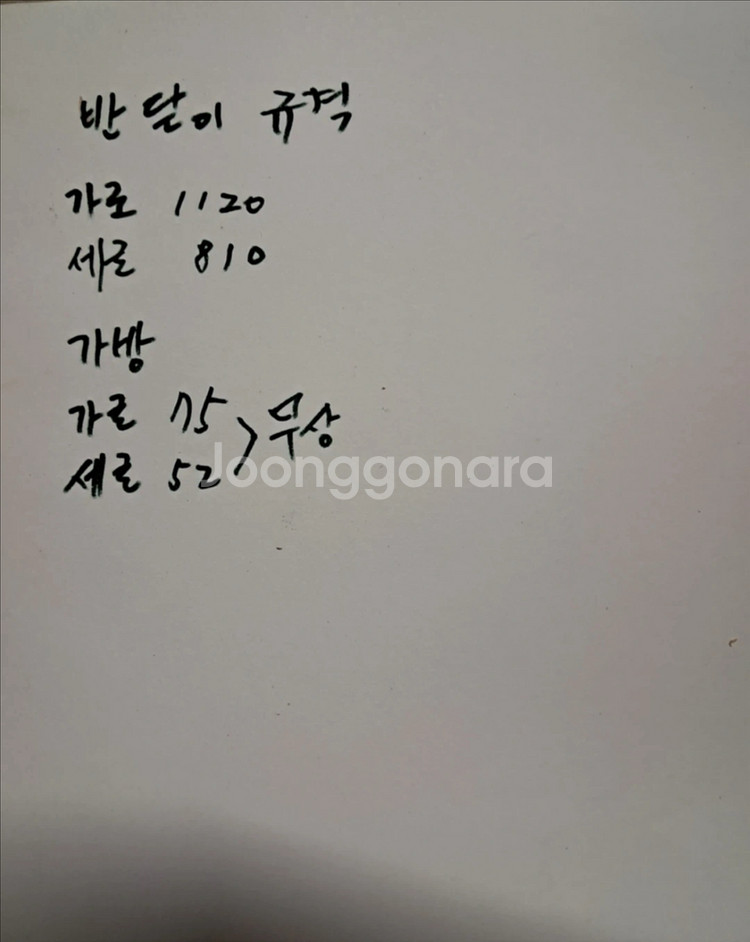 반달이 규격
가로 1120
세로 810
가방
가로 75
세로 52 > 무상
Joonggonara